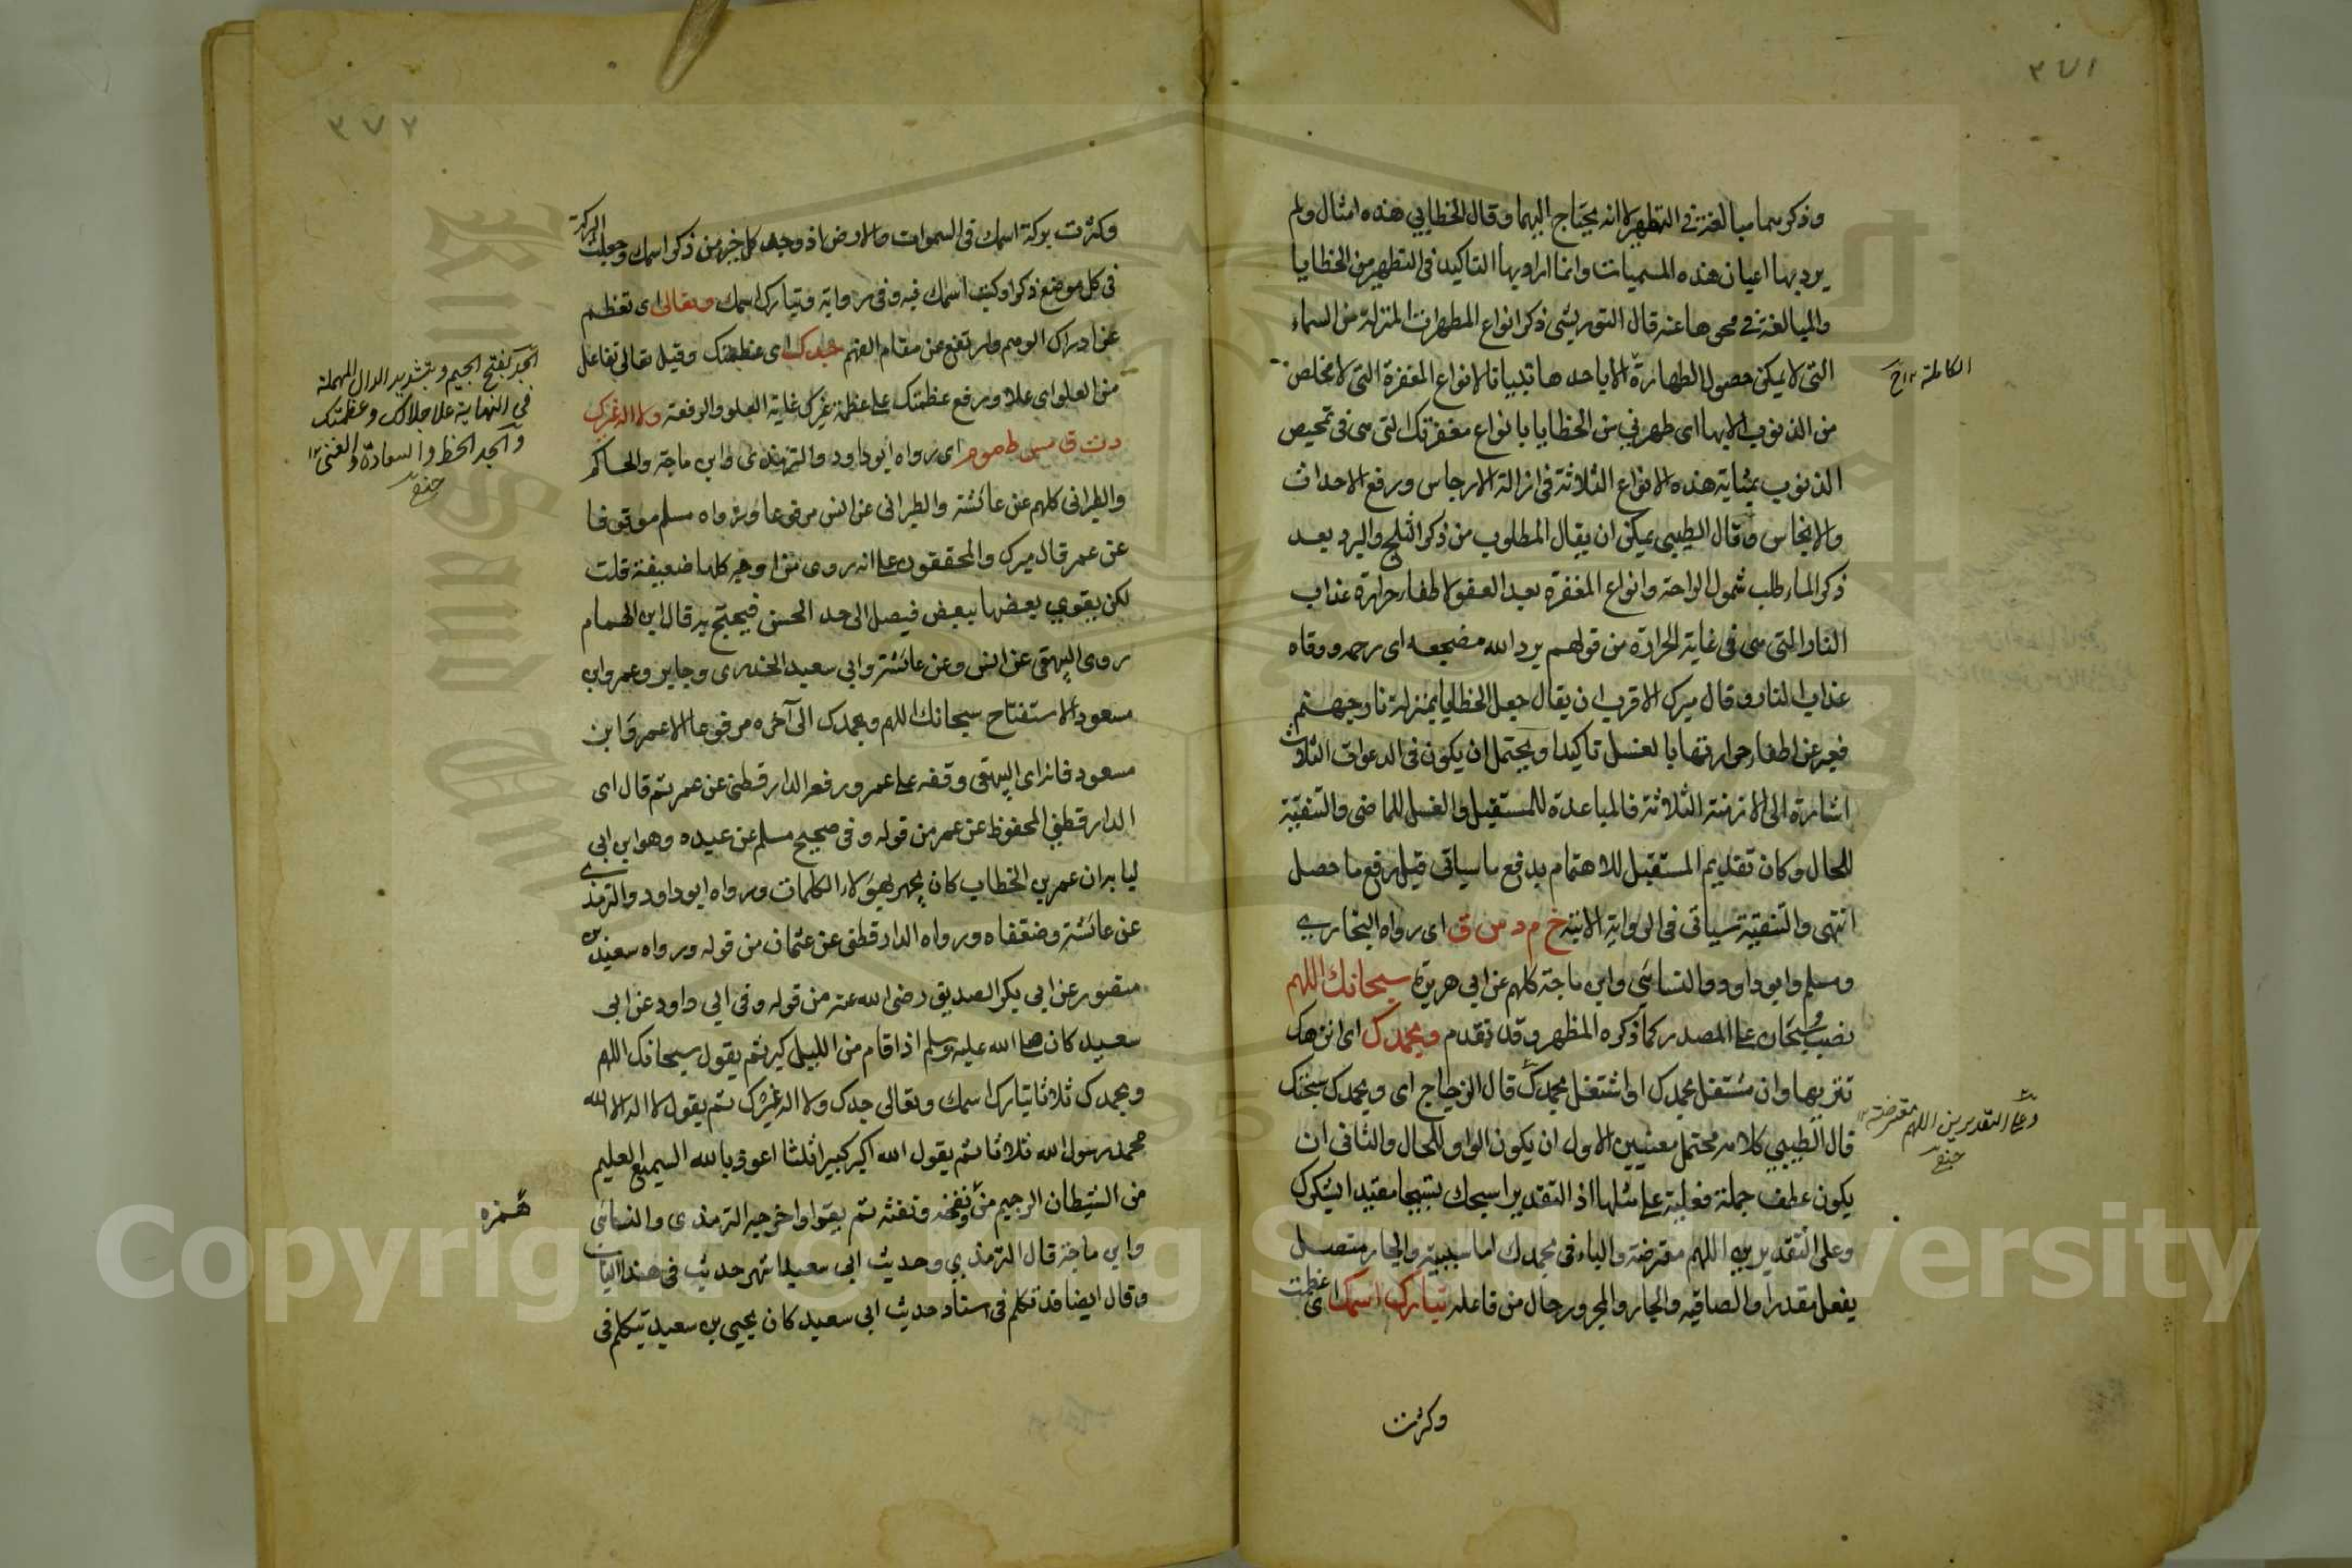 ٣٧١
وذكرهما مبالغة في التطهير لا انه يحتاج اليهما وقال الخطابي هذه امثال ولم
يرد بها اعيان هذه المسميات وانما اراد بها التاكيد في التطهير من الخطايا
والمبالغة في محوها عنه قال التوربشتي ذكر انواع المطهرات المنزلة من السماء
التي لا يمكن حصول الطهارة الا باحدها تبيانا لانواع المغفرة التي لا مخلص
الكاملة ١٢ ح
من الذنوب الا بها اي طهرني من الخطايا بانواع مغفرتك التي هي في تمحيص
الذنوب بمثابة هذه الانواع الثلاثة في ازالة الارجاس ورفع الاحداث
والانجاس وقال الطيبي يمكن ان يقال المطلوب من ذكر الثلج والبرد بعد
ذكر الماء طلب شمول الرحمة وانواع المغفرة بعد العفو لاطفاء حرارة عذاب
النار التي هي في غاية الحرارة من قولهم برد الله مضجعه اي رحمه ووقاه
عذاب النار وقال ميرك الاقرب ان يقال جعل الخطايا بمنزلة نار جهنم
فعبر عن اطفاء حرارتها بالغسل تاكيدا ويحتمل ان يكون في الدعوات الثلاث
اشارة الى الازمنة الثلاثة فالمباعدة للمستقبل والغسل للماضي والتنقية
للحال وكان تقديم المستقبل للاهتمام بدفع ما سياتي قبل رفع ما حصل
انتهى والتنقية سياتي في الرواية الاتية خ م د س ق اي رواه البخاري
ومسلم وابو داود والنسائي وابن ماجة كلهم عن ابي هريرة سبحانك اللهم
نصب سبحان على المصدر كما ذكره المظهر وقد تقدم وبحمدك اي انزهك
تنزيها وان مشتغل بحمدك او اشتغل بحمدك قال الزجاج اي وبحمدك سبحتك
قال الطيبي كلامه محتمل معنيين الاول ان يكون الواو للحال والثاني ان
وعلى التقديرين اللهم معترضة ١٢
حنفي
يكون عطف جملة فعلية على مثلها اذ التقدير اسبحك تسبيحا مقيدا بشكرك
وعلى التقديرين اللهم معترضة والباء في بحمدك اما سببية والجار متصل
بفعل مقدر او الصاقية والجار والمجرور حال من فاعله تبارك اسمك اي عظمت
وكثرت
٣٧٢
وكثرت بركة اسمك في السموات والارض اذ وجد كل خير من ذكر اسمك وجعلت البركة
في كل موضع ذكر او كتب اسمك فيه وفي رواية وتبارك اسمك وتعالى اي تعظم
عن ادراك الوهم وارتفع عن مقام الفهم جدك اي عظمتك وقيل تعالى تفاعل
من العلو اي علا ورفع عظمتك على عظمة غيرك غاية العلو والرفعة ولا اله غيرك
الجد بفتح الجيم وبتشديد الدال المهملة
في النهاية علا جلالك وعظمتك
والجد الحظ والسعادة والغنى ١٢
حنفي
د ت ق مس ط مو م اي رواه ابو داود والترمذي وابن ماجة والحاكم
والطبراني كلهم عن عائشة والطبراني عن انس مرفوعا ورواه مسلم موقوفا
عن عمر قال ميرك والمحققون على انه روي من اوجه كلها ضعيفة قلت
لكن يقوي بعضها ببعض فيصل الى حد الحسن فيحتج به قال ابن الهمام
روى البيهقي عن انس وعن عائشة وابي سعيد الخدري وجابر وعمر وابن
مسعود الاستفتاح سبحانك اللهم وبحمدك الى آخره مرفوعا الا عمر وابن
مسعود فانه اي البيهقي وقفه على عمر ورفعه الدارقطني عن عمر ثم قال اي
الدارقطني المحفوظ عن عمر من قوله وفي صحيح مسلم عن عبده وهو ابن ابي
لبابة ان عمر بن الخطاب كان يجهر بهؤلاء الكلمات ورواه ابو داود والترمذي
عن عائشة وضعفاه ورواه الدارقطني عن عثمان من قوله ورواه سعيد بن
منصور عن ابي بكر الصديق رضي الله عنه من قوله وفي ابي داود عن ابي
سعيد كان صلى الله عليه وسلم اذا قام من الليل كبر ثم يقول سبحانك اللهم
وبحمدك ثلاثا تبارك اسمك وتعالى جدك ولا اله غيرك ثم يقول لا اله الا الله
محمد رسول الله ثلاثا ثم يقول الله اكبر كبيرا ثلثا اعوذ بالله السميع العليم
من الشيطان الرجيم من ونفخه ونفثه ثم يقرا واخرجه الترمذي والنسائي
همزه
وابن ماجة قال الترمذي وحديث ابي سعيد اشهر حديث في هذا الباب
وقال ايضا قد تكلم في اسناد حديث ابي سعيد كان يحيى بن سعيد يتكلم في
Copyright © King Saud University